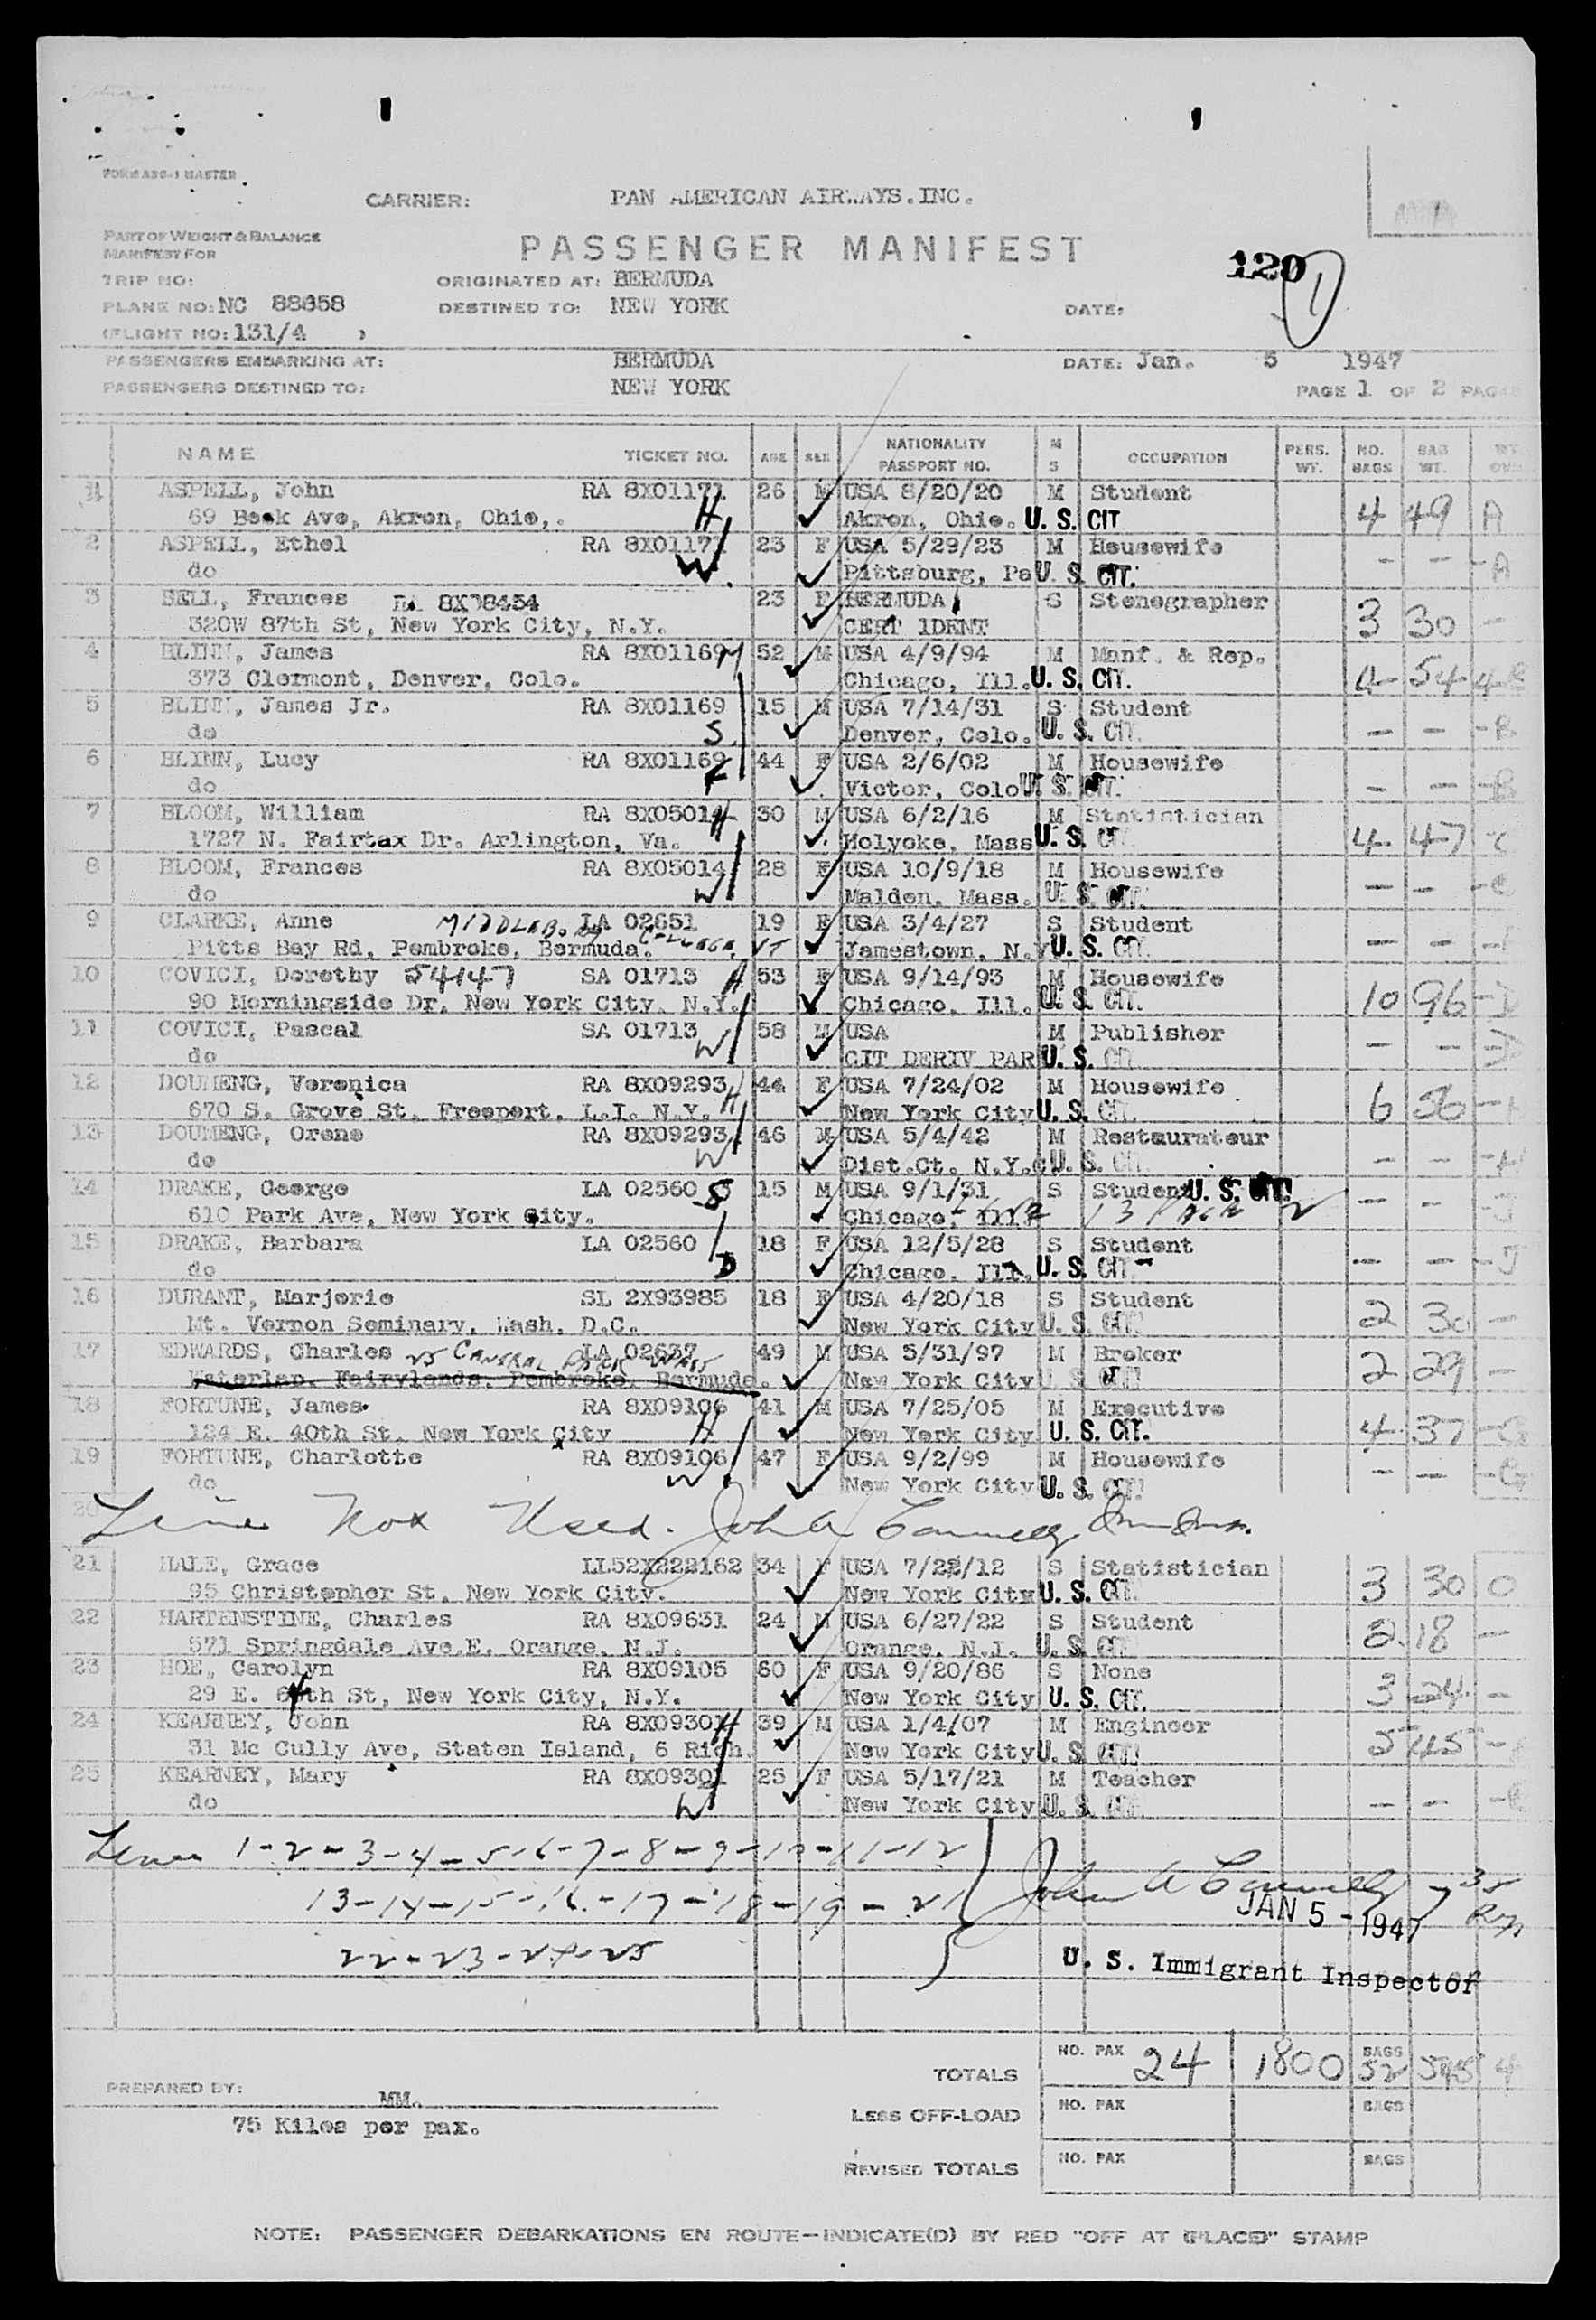 FORM ASG-1 MASTER
CARRIER: PAN AMERICAN AIRWAYS.INC.
PART OF WEIGHT & BALANCE
MANIFEST FOR
PASSENGER MANIFEST
120
1
TRIP NO: ORIGINATED AT: BERMUDA
PLANE NO: NC 88858 DESTINED TO: NEW YORK DATE:
(FLIGHT NO: 131/4 )
PASSENGERS EMBARKING AT: BERMUDA DATE: Jan. 5 1947
PASSENGERS DESTINED TO: NEW YORK PAGE 1 OF 2 PAGES
NAME TICKET NO. AGE SEX NATIONALITY PASSPORT NO. M S OCCUPATION PERS. WT. NO. BAGS BAG WT.
1 ASPELL, John RA 8X01171 26 M USA 8/20/20 M Student
69 Beck Ave, Akron, Ohio,. H Akron, Ohio. U. S. CIT 4 49 A
2 ASPELL, Ethel RA 8X01171 23 F USA 5/29/23 M Housewife
do W. Pittsburg, Pa U. S. CIT. - - - A
3 BELL, Frances RA 8X08454 23 F BERMUDA S Stenographer
320W 87th St, New York City, N.Y. CERT IDENT 3 30 -
4 BLINN, James RA 8X01169 M 52 M USA 4/9/94 M Manf. & Rep.
373 Clermont, Denver, Colo. Chicago, Ill. U. S. CIT. 4 54 4 B
5 BLINN, James Jr. RA 8X01169 15 M USA 7/14/31 S Student
do S Denver, Colo. U. S. CIT. - - - B
6 BLINN, Lucy RA 8X01169 44 F USA 2/6/02 M Housewife
do F Victor, Colo U. S. CIT. - - - B
7 BLOOM, William RA 8X05014 H 30 M USA 6/2/16 M Statistician
1727 N. Fairtax Dr. Arlington, Va. Holyoke, Mass U. S. CIT. 4 47 - C
8 BLOOM, Frances RA 8X05014 28 F USA 10/9/18 M Housewife
do W Malden, Mass. U. S. CIT. - - - C
9 CLARKE, Anne LA 02651 19 F USA 3/4/27 S Student
MIDDLEBURY COLLEGE, VT
Pitts Bay Rd, Pembroke, Bermuda. Jamestown, N.Y U. S. CIT. - - -
10 COVICI, Dorothy 54147 SA 01713 H 53 F USA 9/14/93 M Housewife
90 Morningside Dr, New York City, N.Y. Chicago, Ill. U. S. CIT. 10 96 - D
11 COVICI, Pascal SA 01713 58 M USA M Publisher
do W CIT DERIV PAR U. S. CIT - - - D
12 DOUMENG, Veronica RA 8X09293 44 F USA 7/24/02 M Housewife
670 S. Grove St, Freeport, L.I. N.Y. H New York City U. S. CIT. 6 56 -
13 DOUMENG, Orene RA 8X09293 46 M USA 5/4/42 M Restaurateur
do W Dist.Ct. N.Y.C U. S. CIT. - - - H
14 DRAKE, George LA 02560 S 15 M USA 9/1/31 S Student U. S. CIT.
610 Park Ave, New York City. Chicago, Ill. - - - J
15 DRAKE, Barbara LA 02560 18 F USA 12/5/28 S Student
do D Chicago, Ill. U. S. CIT. - - - J
16 DURANT, Marjorie SL 2X93985 18 F USA 4/20/18 S Student
Mt. Vernon Seminary, Wash. D.C. New York City U. S. CIT. 2 30 -
17 EDWARDS, Charles LA 02637 49 M USA 5/31/97 M Broker
25 CENTRAL PARK WEST
Waterlap, Fairylands, Pembroke, Bermuda. New York City U. S. CIT. 2 29 -
18 FORTUNE, James RA 8X09106 41 M USA 7/25/05 M Executive
124 E. 40th St, New York City H New York City U. S. CIT. 4 37 - G
19 FORTUNE, Charlotte RA 8X09106 47 F USA 9/2/99 M Housewife
do W New York City U. S. CIT. - - - G
20
Line Not Used. John A Connelly
21 HALE, Grace LL52X222162 34 F USA 7/22/12 S Statistician
95 Christopher St, New York City. New York City U. S. CIT. 3 30 O
22 HARTENSTINE, Charles RA 8X09631 24 M USA 6/27/22 S Student
571 Springdale Ave.E. Orange, N.J. Orange, N.J. U. S. CIT. 2 18 -
23 HOE, Carolyn RA 8X09105 60 F USA 9/20/86 S None
29 E. 64th St, New York City, N.Y. New York City U. S. CIT. 3 24 -
24 KEARNEY, John RA 8X09301 H 39 M USA 1/4/07 M Engineer
31 Mc Cully Ave, Staten Island, 6 Rich. New York City U. S. CIT. 5 45 -
25 KEARNEY, Mary RA 8X09301 25 F USA 5/17/21 M Teacher
do W New York City U. S. CIT. - - -
Lines 1-2-3-4-5-6-7-8-9-10-11-12
13-14-15-16-17-18-19-21
22-23-24-25
John A Connelly
JAN 5 - 1947
U. S. Immigrant Inspector
TOTALS NO. PAX 24 1800 BAGS 52 545 4
PREPARED BY: MM.
LESS OFF-LOAD NO. PAX BAGS
75 Kilos per pax.
REVISED TOTALS NO. PAX BAGS
NOTE: PASSENGER DEBARKATIONS EN ROUTE—INDICATE(D) BY RED "OFF AT (PLACE)" STAMP